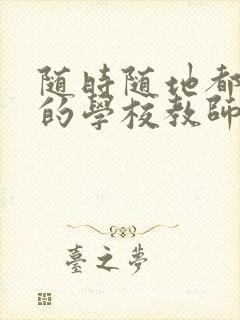 随時随地都
的學校教師
臺之夢